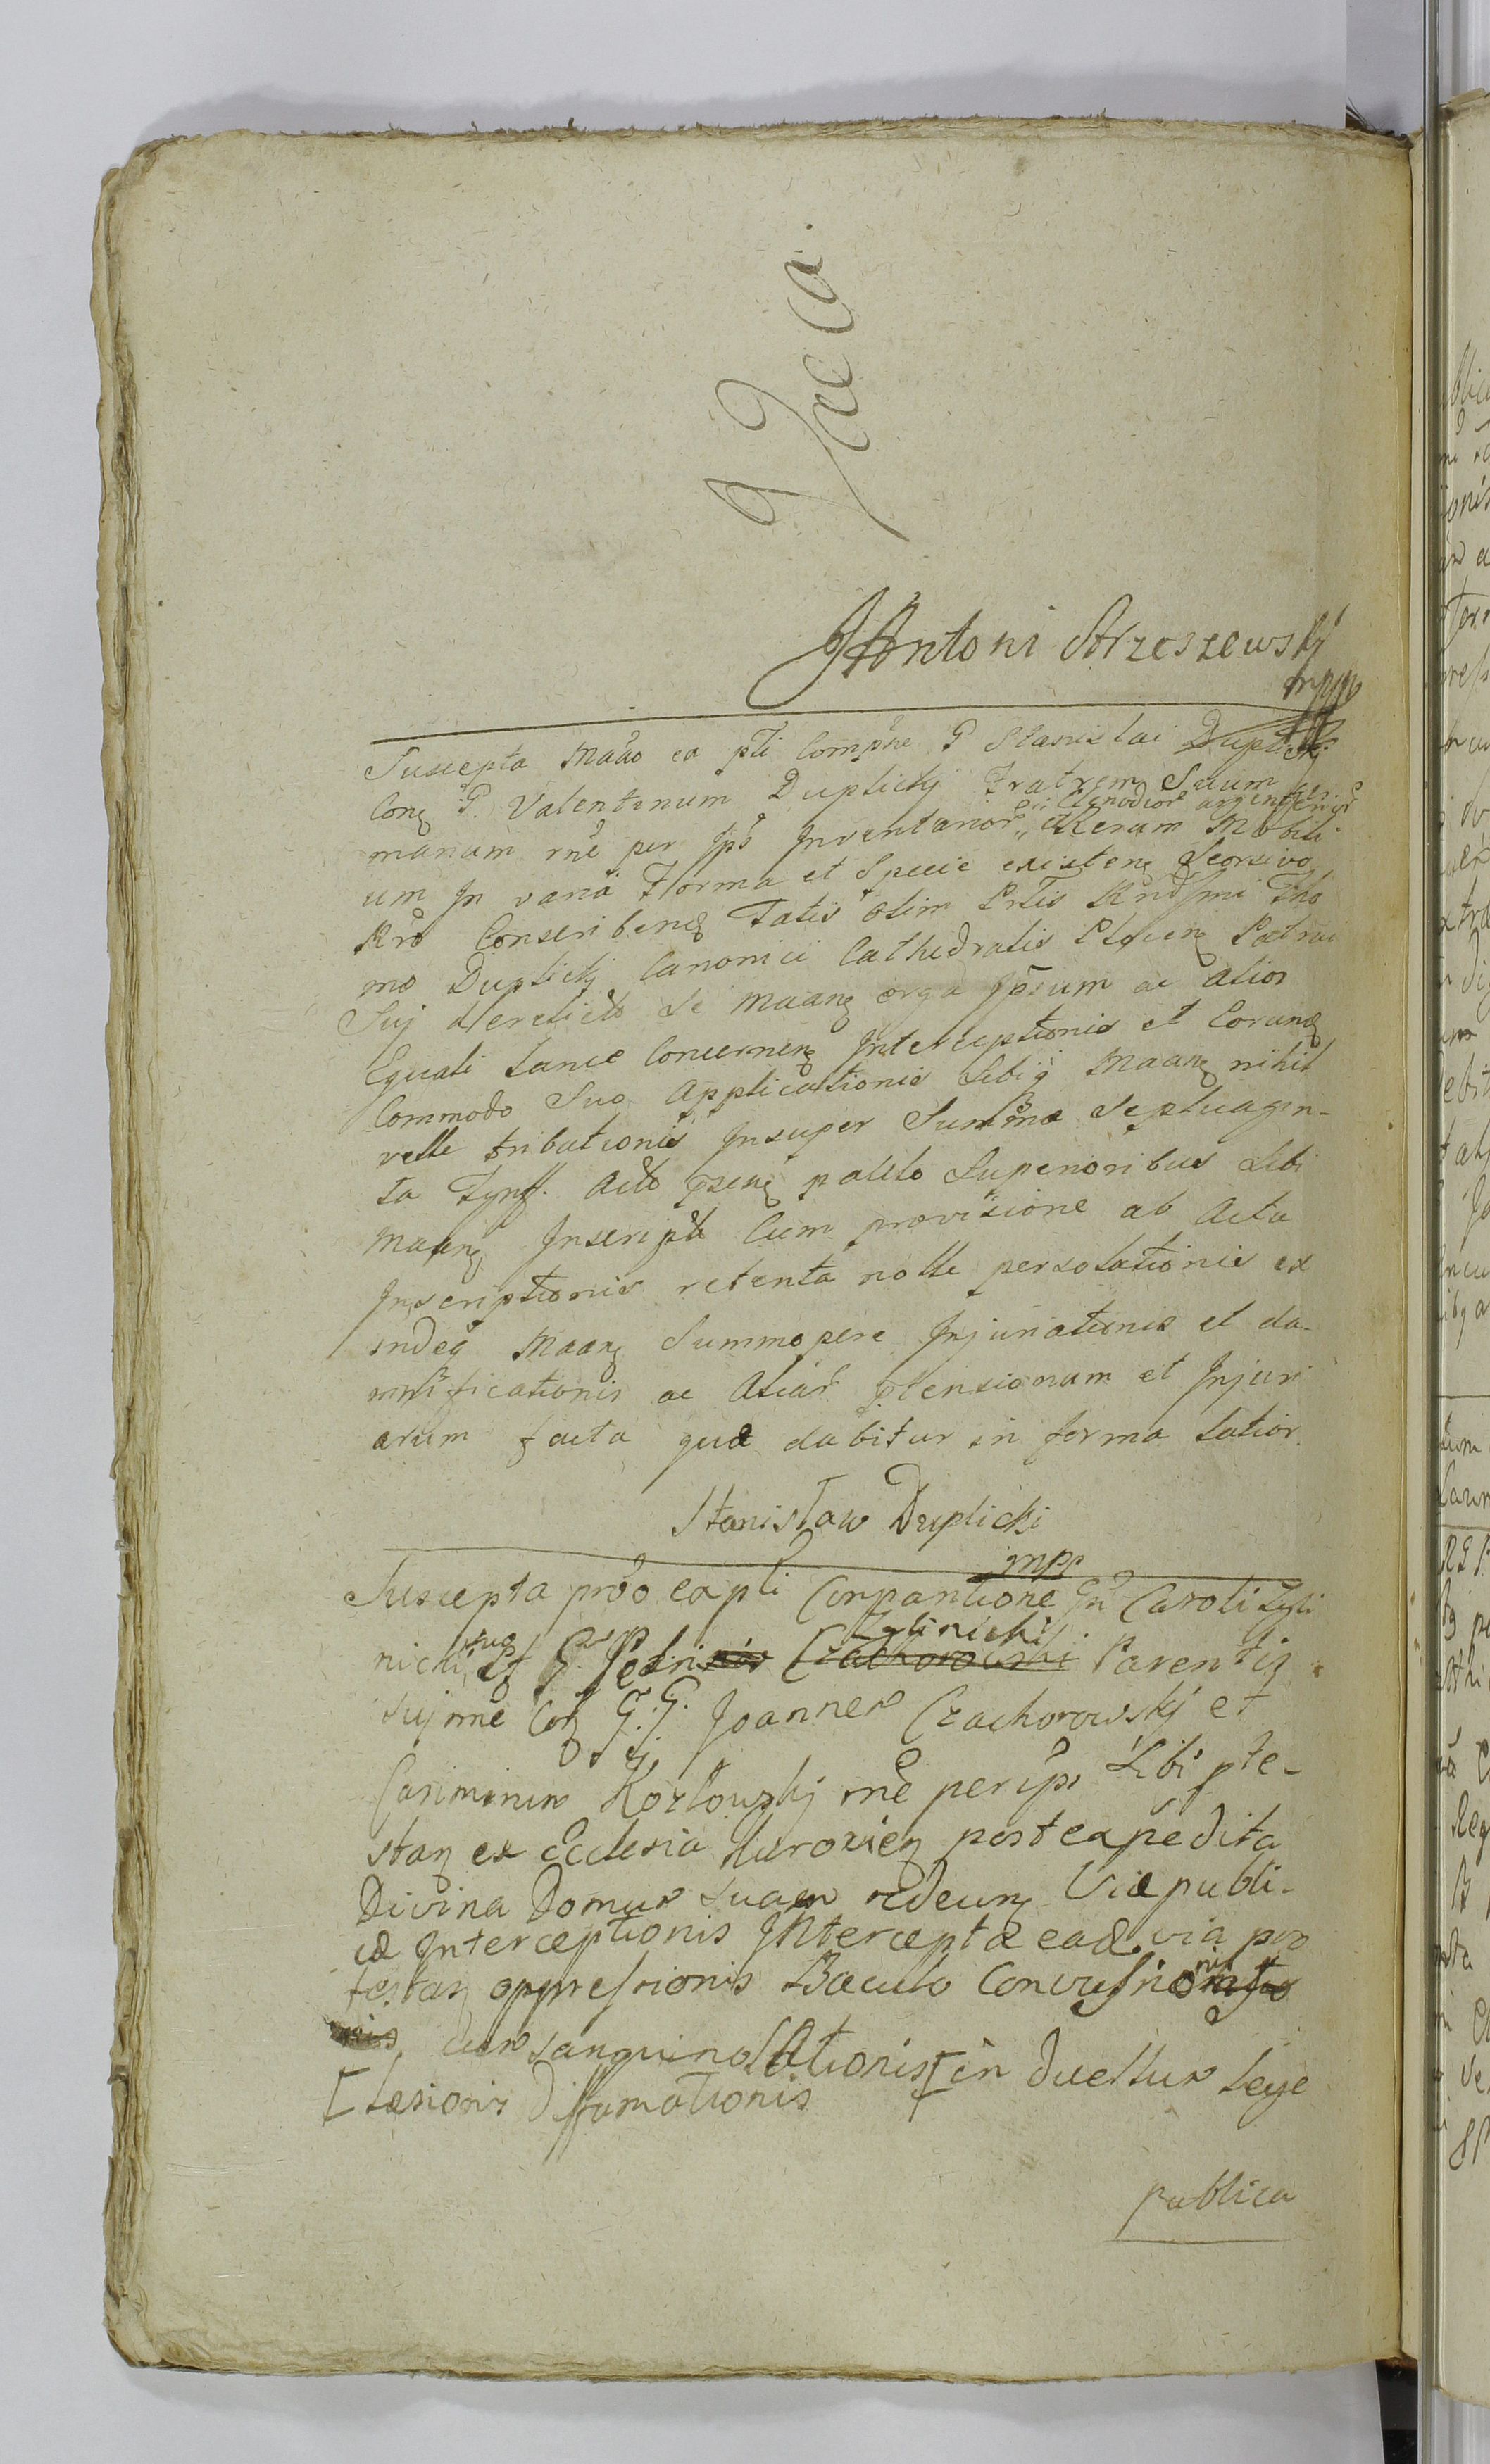 Facta
J Antoni Strzeszewskj
mppp
Suscepta Maão ex pti Compñe G Stanislai Duplickj
Conq G. Valentinum Duplickj Fratrem Suum ger
manum rñe per Jps Inventarior Clenodior argenterior
et Rerum Mobili
um Jn varia Forma et Specie existenq Seorsivo
Rro Conscribenq Talis olim Prlis Rndssmi Tho
mo Duplickj Canonici Cathedralis Plocenq Patrui
Suj derelicto Se Maanq erga Jpsum ac alior
Equali Lance Concernenq Interceptionis et Eorunq
Commodo Suo Applicationis Sibiq Maanq nihil
velle tribationis Insuper Summæ Septuagin-
ta Tynff. Acto pseng palsto Superioribus Sibi
Maanq Inscripta Cum provisione ab Acta
Inscriptionis retenta nolle persolationis ex
indeq Maanq Summopere Injuriationis et da-
mnificationis ac Aliar ptensionum et Injuri
arum facta quæ dabitur in forma latior
Stanisław Duplicki
mpp
Suscepta prõo ex pti Compantione Gñ Caroli Zgli
nicki suo et G. Petri Zglinicki
Czachorowski Parentis
suj rñe Conq G.G. Joannem Czachorowskj et
Casimirum Kozłowskj rñe per ips Sibi pte-
stanq ex Ecclesia Kuroxienq post expedita
Divina Domum suam redeunq Viæ publi-
cæ Interceptionis Jntercepta eadē via pro
testanq oppressionis Baculo Concussionis
cum sanguinolationis [in duellum lege
[læsionis diffamationis
publica